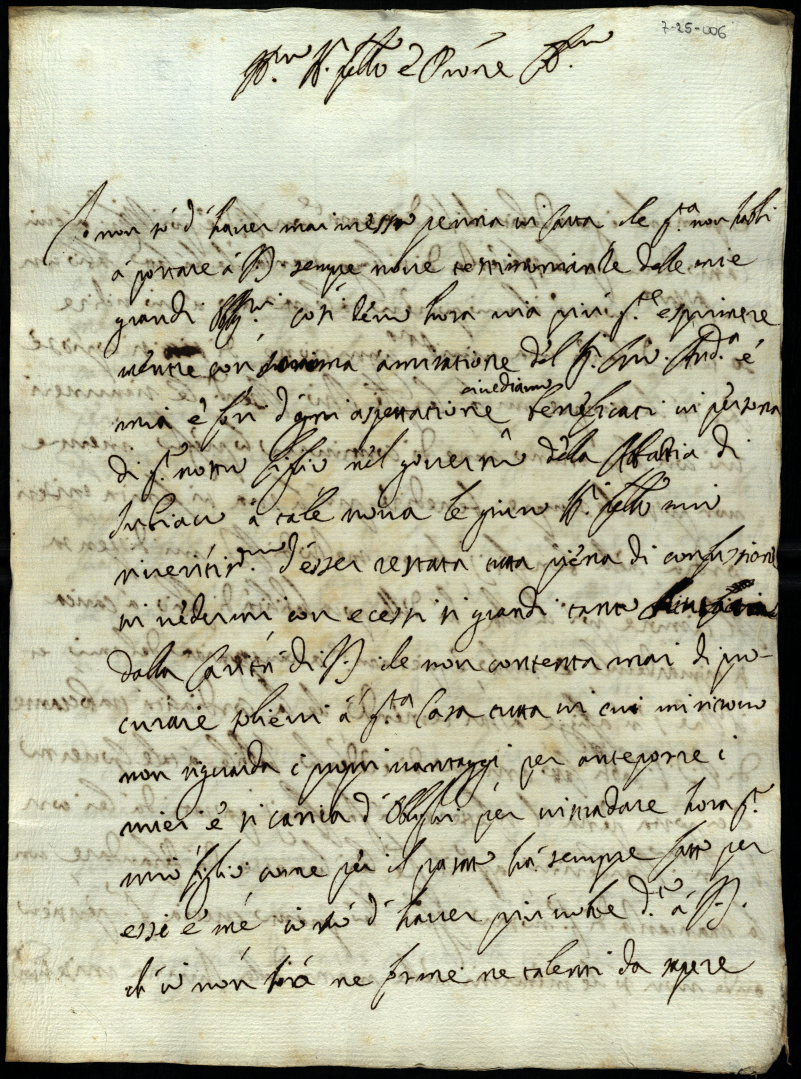 7-25-006
Ill.mo Sig.r fr̃llo e Pr̃one
Io non sò d'haver mai messo penna in carta che q.ta non habbi
à portare à V.S. sempre nove testimonianze delle mie
grandi così devo hora via più q.to esprimere
mentre con somma amiratione del Sig. And.a e
mia e fori d'ogni aspettatione ci vediamo beneficati in persona
di q.to nostro figlio nel governo della Abbatia di
Subiaco à tale nova le giuro Sig. fr̃llo mio
riveritis.mo d'esser restata tutta piena di confusione
in vedermi con ecessi si grandi tanto
dalla Carità di V.S. che non contenta mai di pro-
curare solievi à q.ta Casa tutta in cui mi ritrovo
non riguarda i propri vantaggi per anteporre i
miei e si carica d'oblighi per instradare hora q.to
mio figlio come per il passato hà sempre fatto per
essi e me io sò d'haver più volte d.to à V.S.
ch'io non hò ne forme ne talenti da sapere